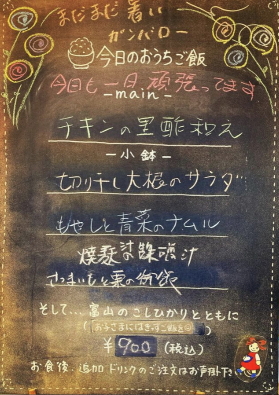 まだまだ暑い
ガンバロー
今日のおうちご飯
今日も一日頑張ってます
-main-
チキンの黒酢和え
-小鉢-
切干し大根のサラダ
もやしと青菜のナムル
さつまいもと栗の御飯
そして…富山のこしひかりとともに
¥900(税込)
お食後、追加ドリンクのご注文はお声掛け下さい